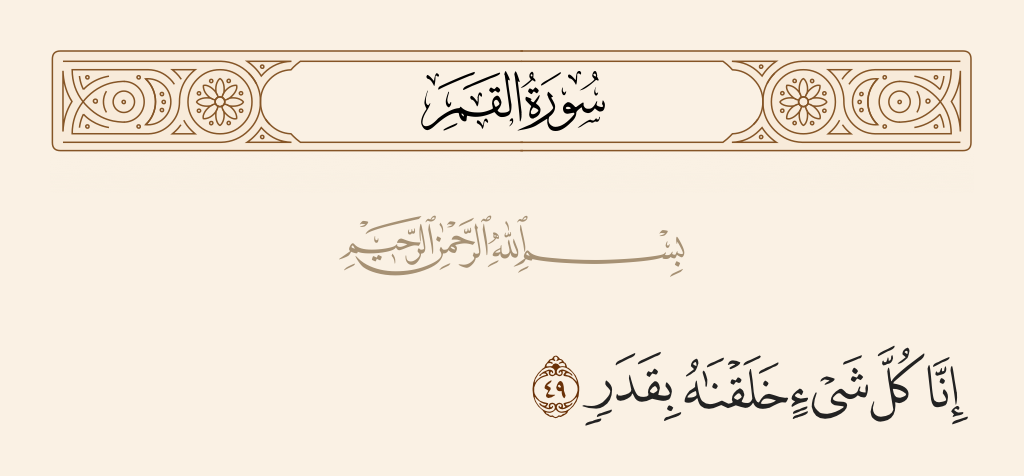 سُورَةُ القَمَرِ
بِسْمِ ٱللَّهِ ٱلرَّحْمَٰنِ ٱلرَّحِيمِ
إِنَّا كُلَّ شَىْءٍ خَلَقْنَـٰهُ بِقَدَرٍ ٤٩